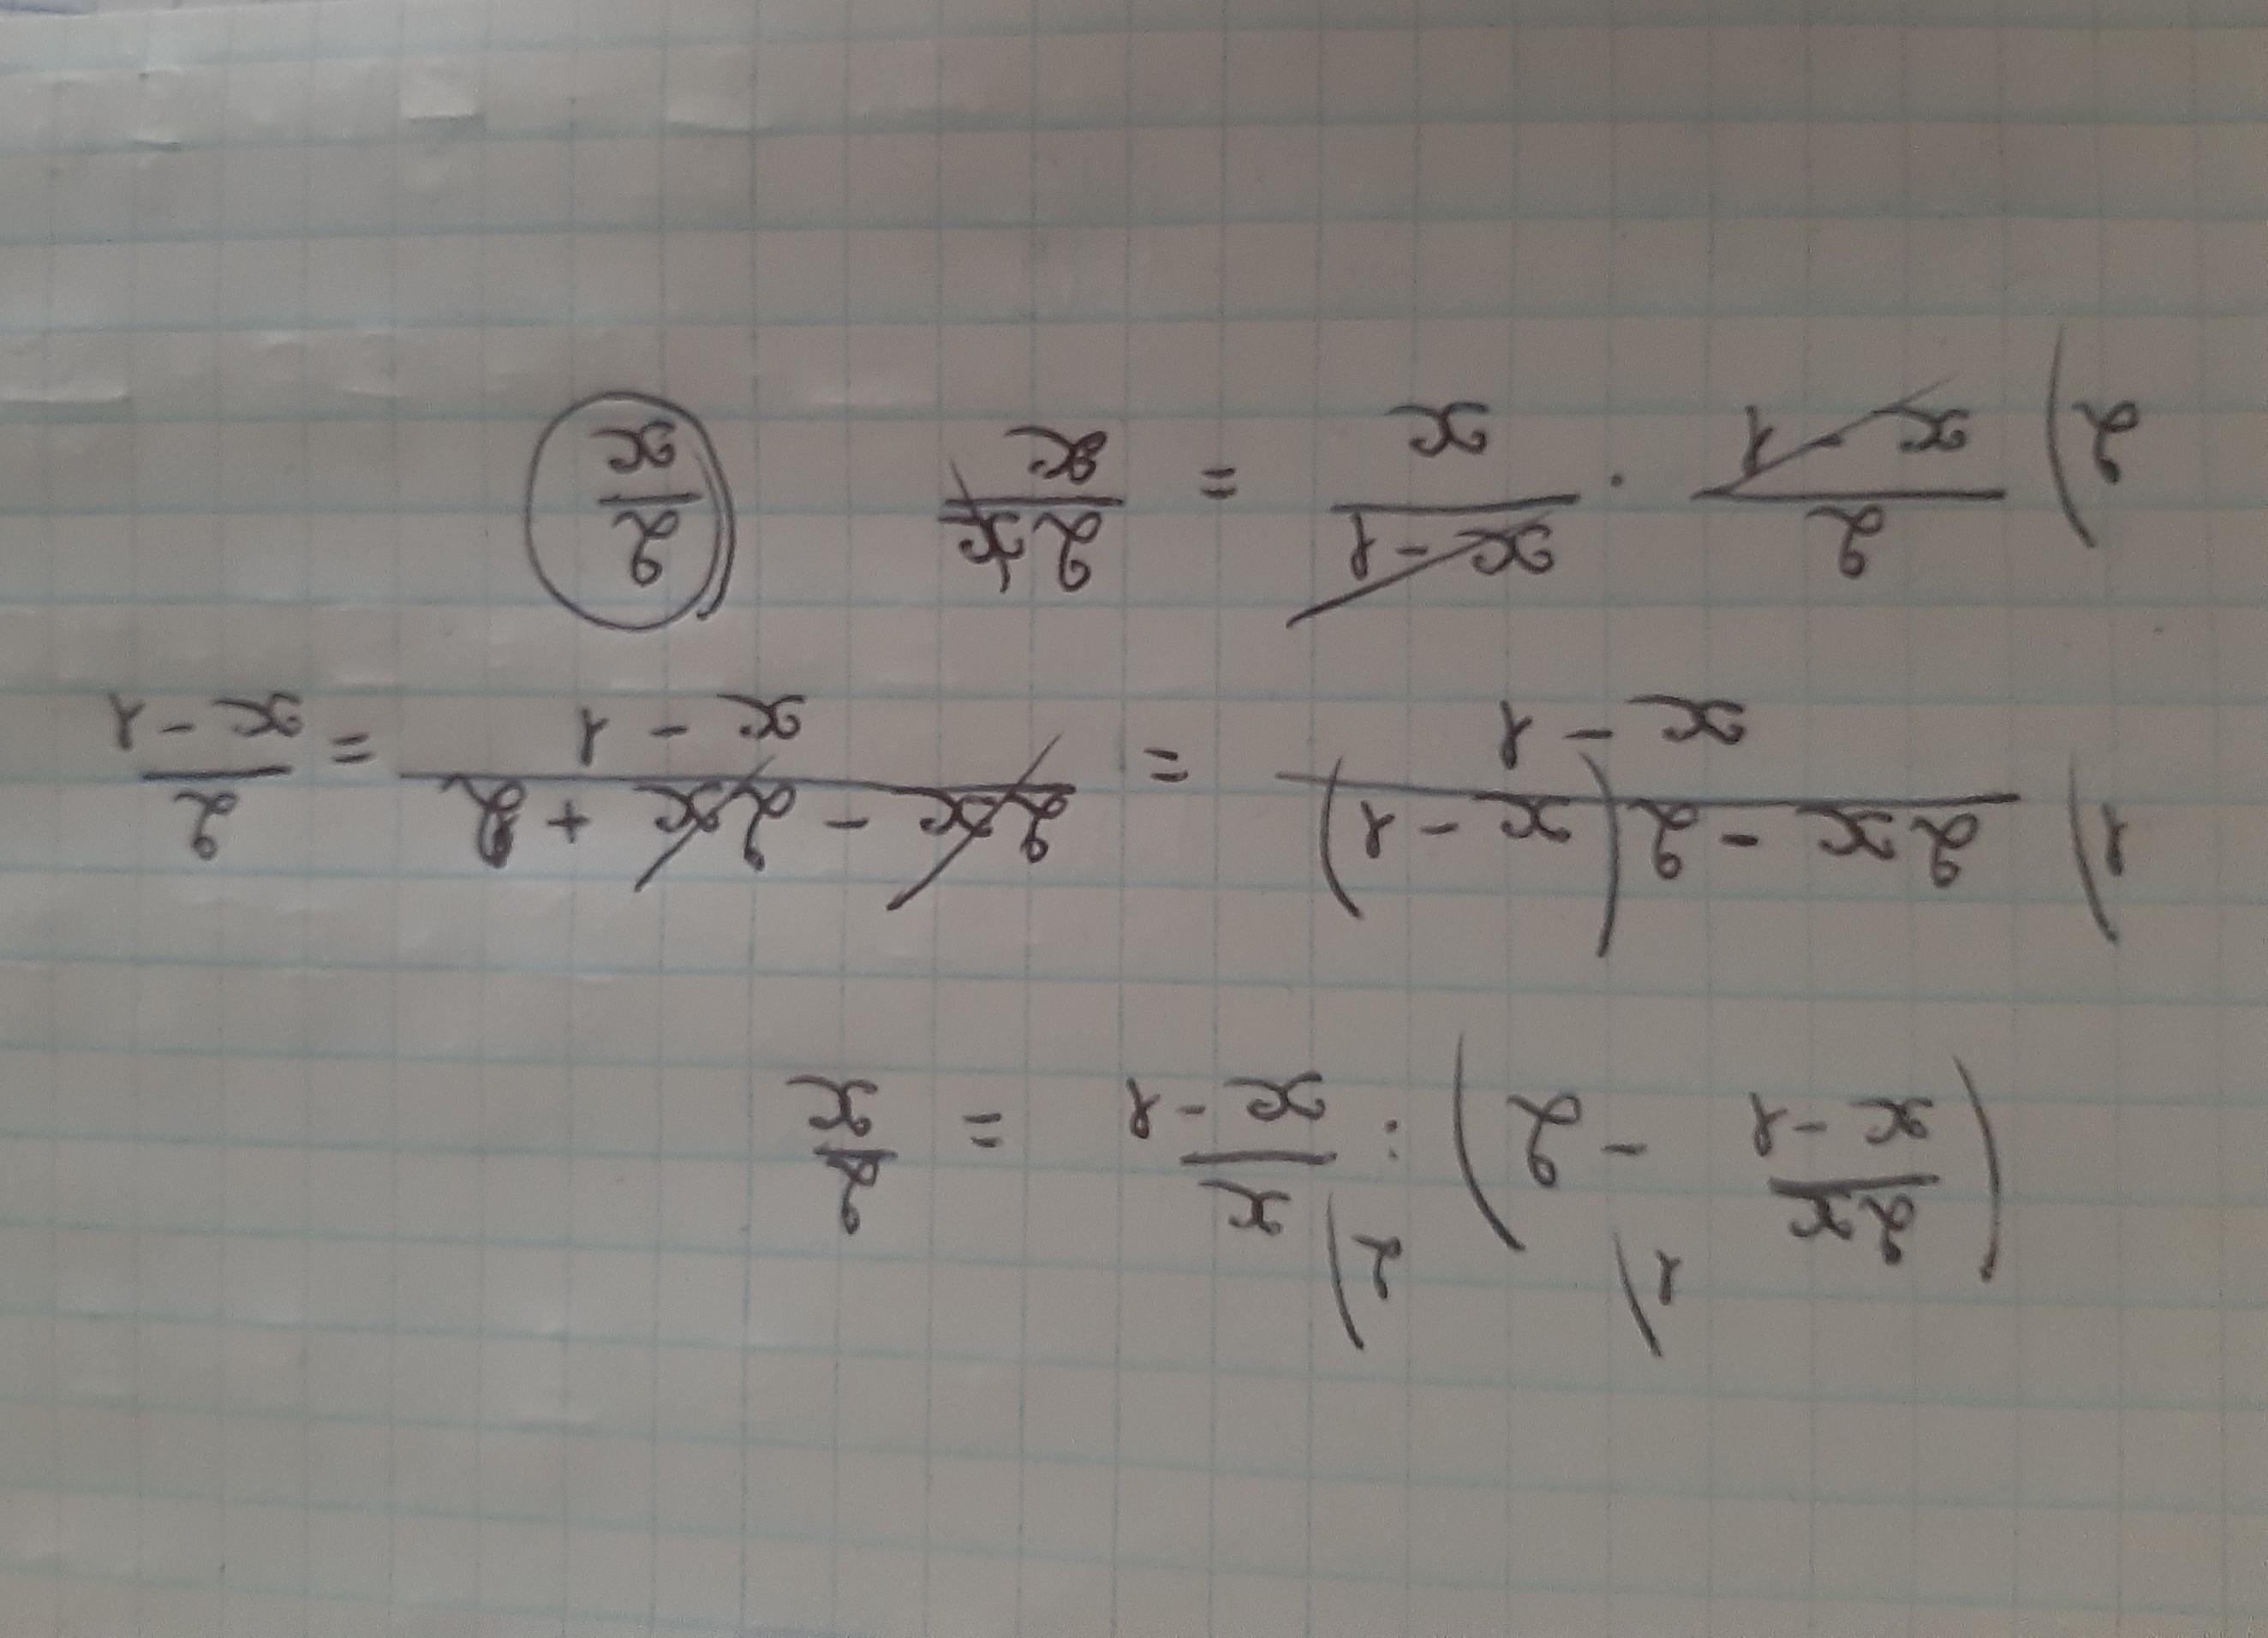 1) 2)
(2x/(x-1) - 2) : x/(x-1) = 2/x
1) (2x-2(x-1))/(x-1) = (2x-2x+2)/(x-1) = 2/(x-1)
2) 2/(x-1) · (x-1)/x = 2x/x 2/x